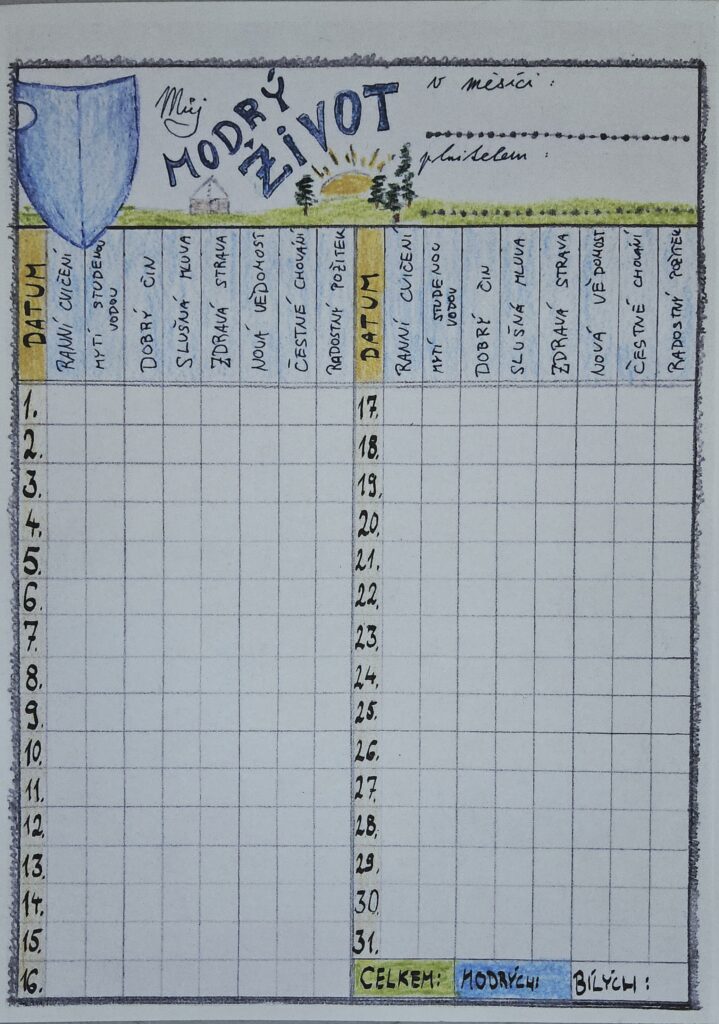 Můj
MODRÝ
ŽIVOT
v měsíci :
plnitelem :
DATUM
RANNÍ CVIČENÍ
MYTÍ STUDENOU
VODOU
DOBRÝ ČIN
SLUŠNÁ MLUVA
ZDRAVÁ STRAVA
NOVÁ VĚDOMOST
ČESTNÉ CHOVÁNÍ
RADOSTNÝ POŽITEK
DATUM
RANNÍ CVIČENÍ
MYTÍ STUDENOU
VODOU
DOBRÝ ČIN
SLUŠNÁ MLUVA
ZDRAVÁ STRAVA
NOVÁ VĚDOMOST
ČESTNÉ CHOVÁNÍ
RADOSTNÝ POŽITEK
1.
2.
3.
4.
5.
6.
7.
8.
9.
10.
11.
12.
13.
14.
15.
16.
17.
18.
19.
20.
21.
22.
23.
24.
25.
26.
27.
28.
29.
30.
31.
CELKEM: MODRÝCH: BÍLÝCH: